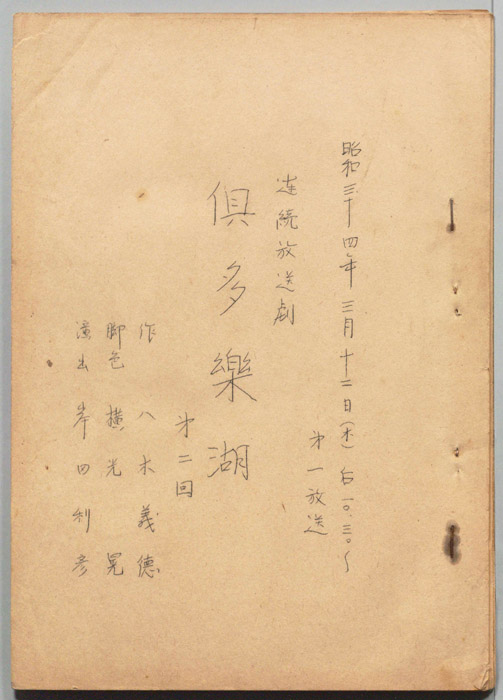 昭和三十四年三月十二日(木)后一〇.三〇〜
第一放送
連続放送劇
倶多樂湖
第二回
作 八木義德
脚色 横光晃
演出 岸田利彦